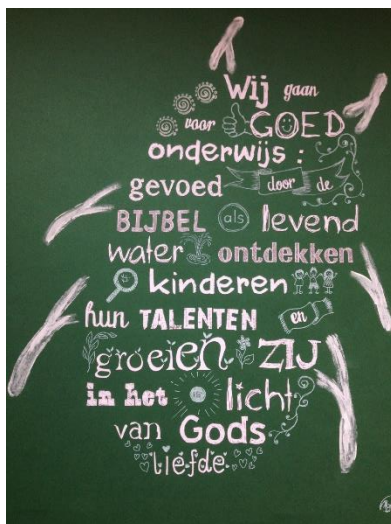 Wij gaan
voor GOED
onderwijs:
gevoed door de
BIJBEL als levend
water ontdekken
kinderen
hun TALENTEN en
groeien ZIJ
in het licht
van Gods
liefde